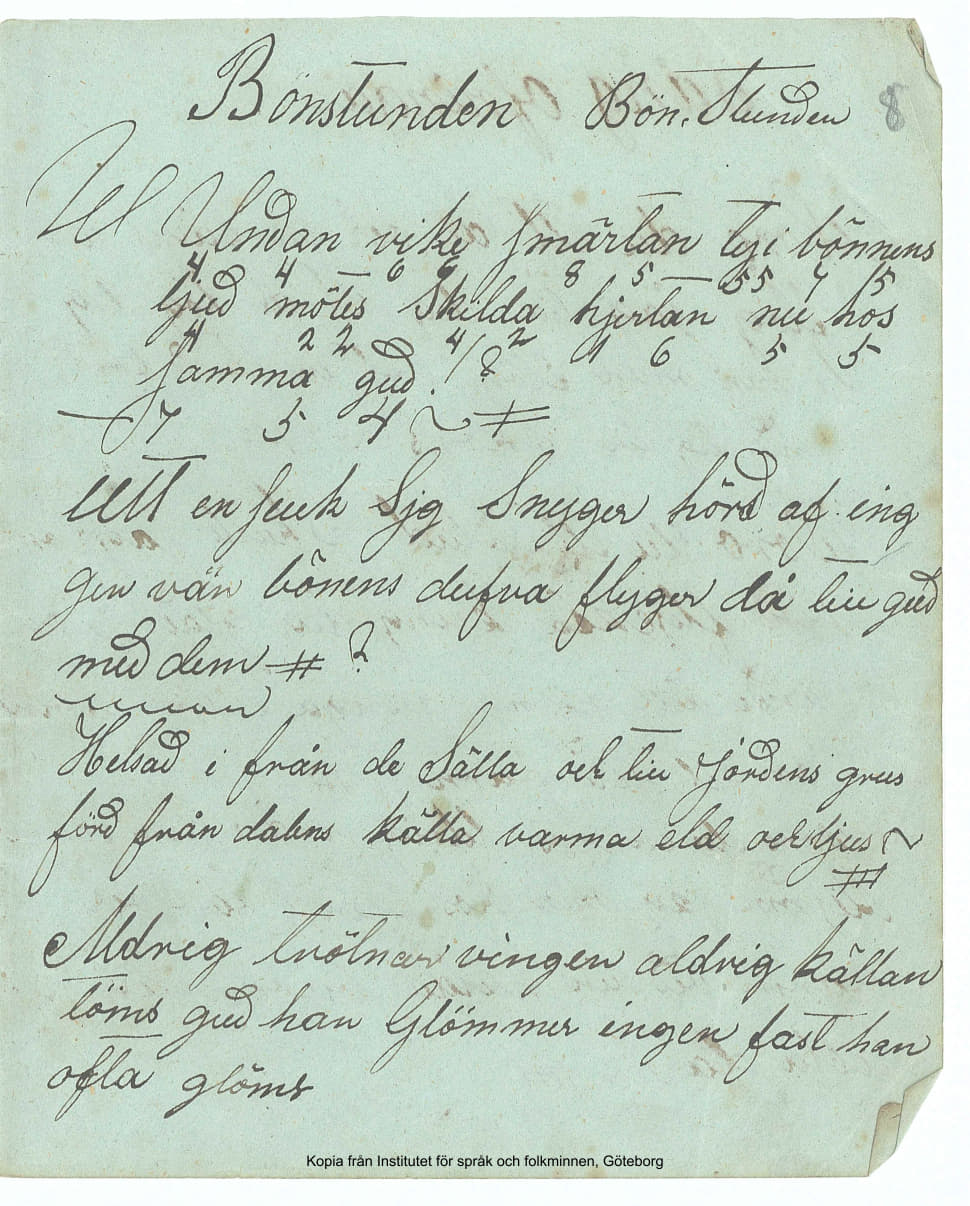 Bönstunden Bön. Stunden 8
U Undan vike smärtan tyi bönnens
4 4 – 6 6 8 5 – 5 5 7 5
ljud mötes Skilda hjertan nu hos
4 2 2 4 / 2 1 6 5 5
samma gud . ?
7 5 4 ~ #
Utt en suck Sjg Snyger hörd af ing
gen vän bönens dufva flyger då till gud
med dem # ?
Helsad i från de Sälla och till jordens grus
förd från dalens källa varma eld och ljus ~
#
Aldrig trötnar vingen aldrig källan
töms gud han Glömmer ingen fast han
ofta glöms
Kopia från Institutet för språk och folkminnen, Göteborg